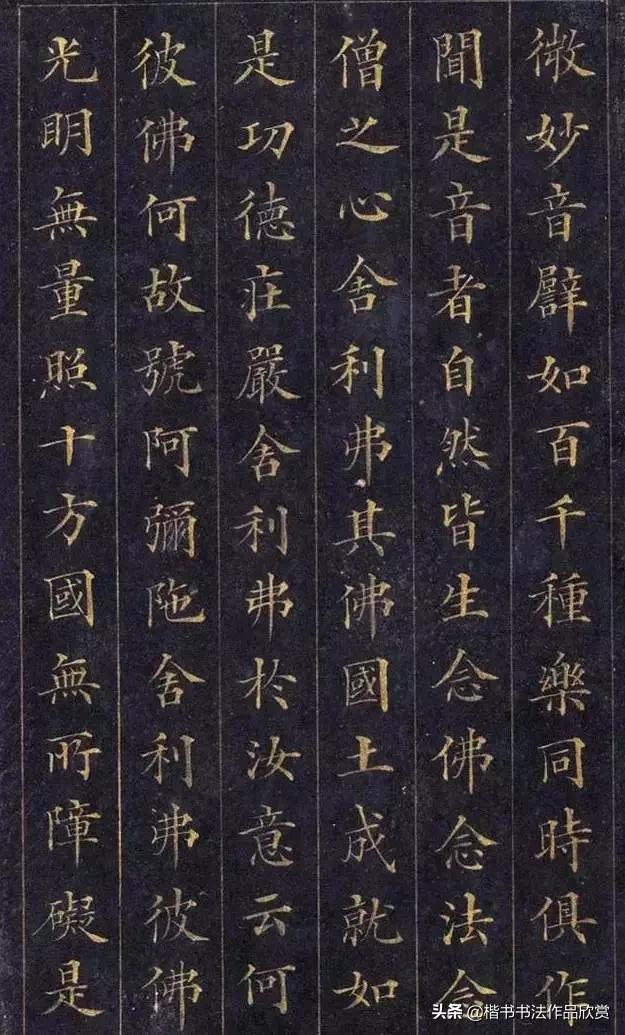 微妙音譬如百千種樂同時俱作
聞是音者自然皆生念佛念法念
僧之心舍利弗其佛國土成就如
是功德莊嚴舍利弗於汝意云何
彼佛何故號阿彌陁舍利弗彼佛
光明無量照十方國無所障礙是
头条 @楷书书法作品欣赏